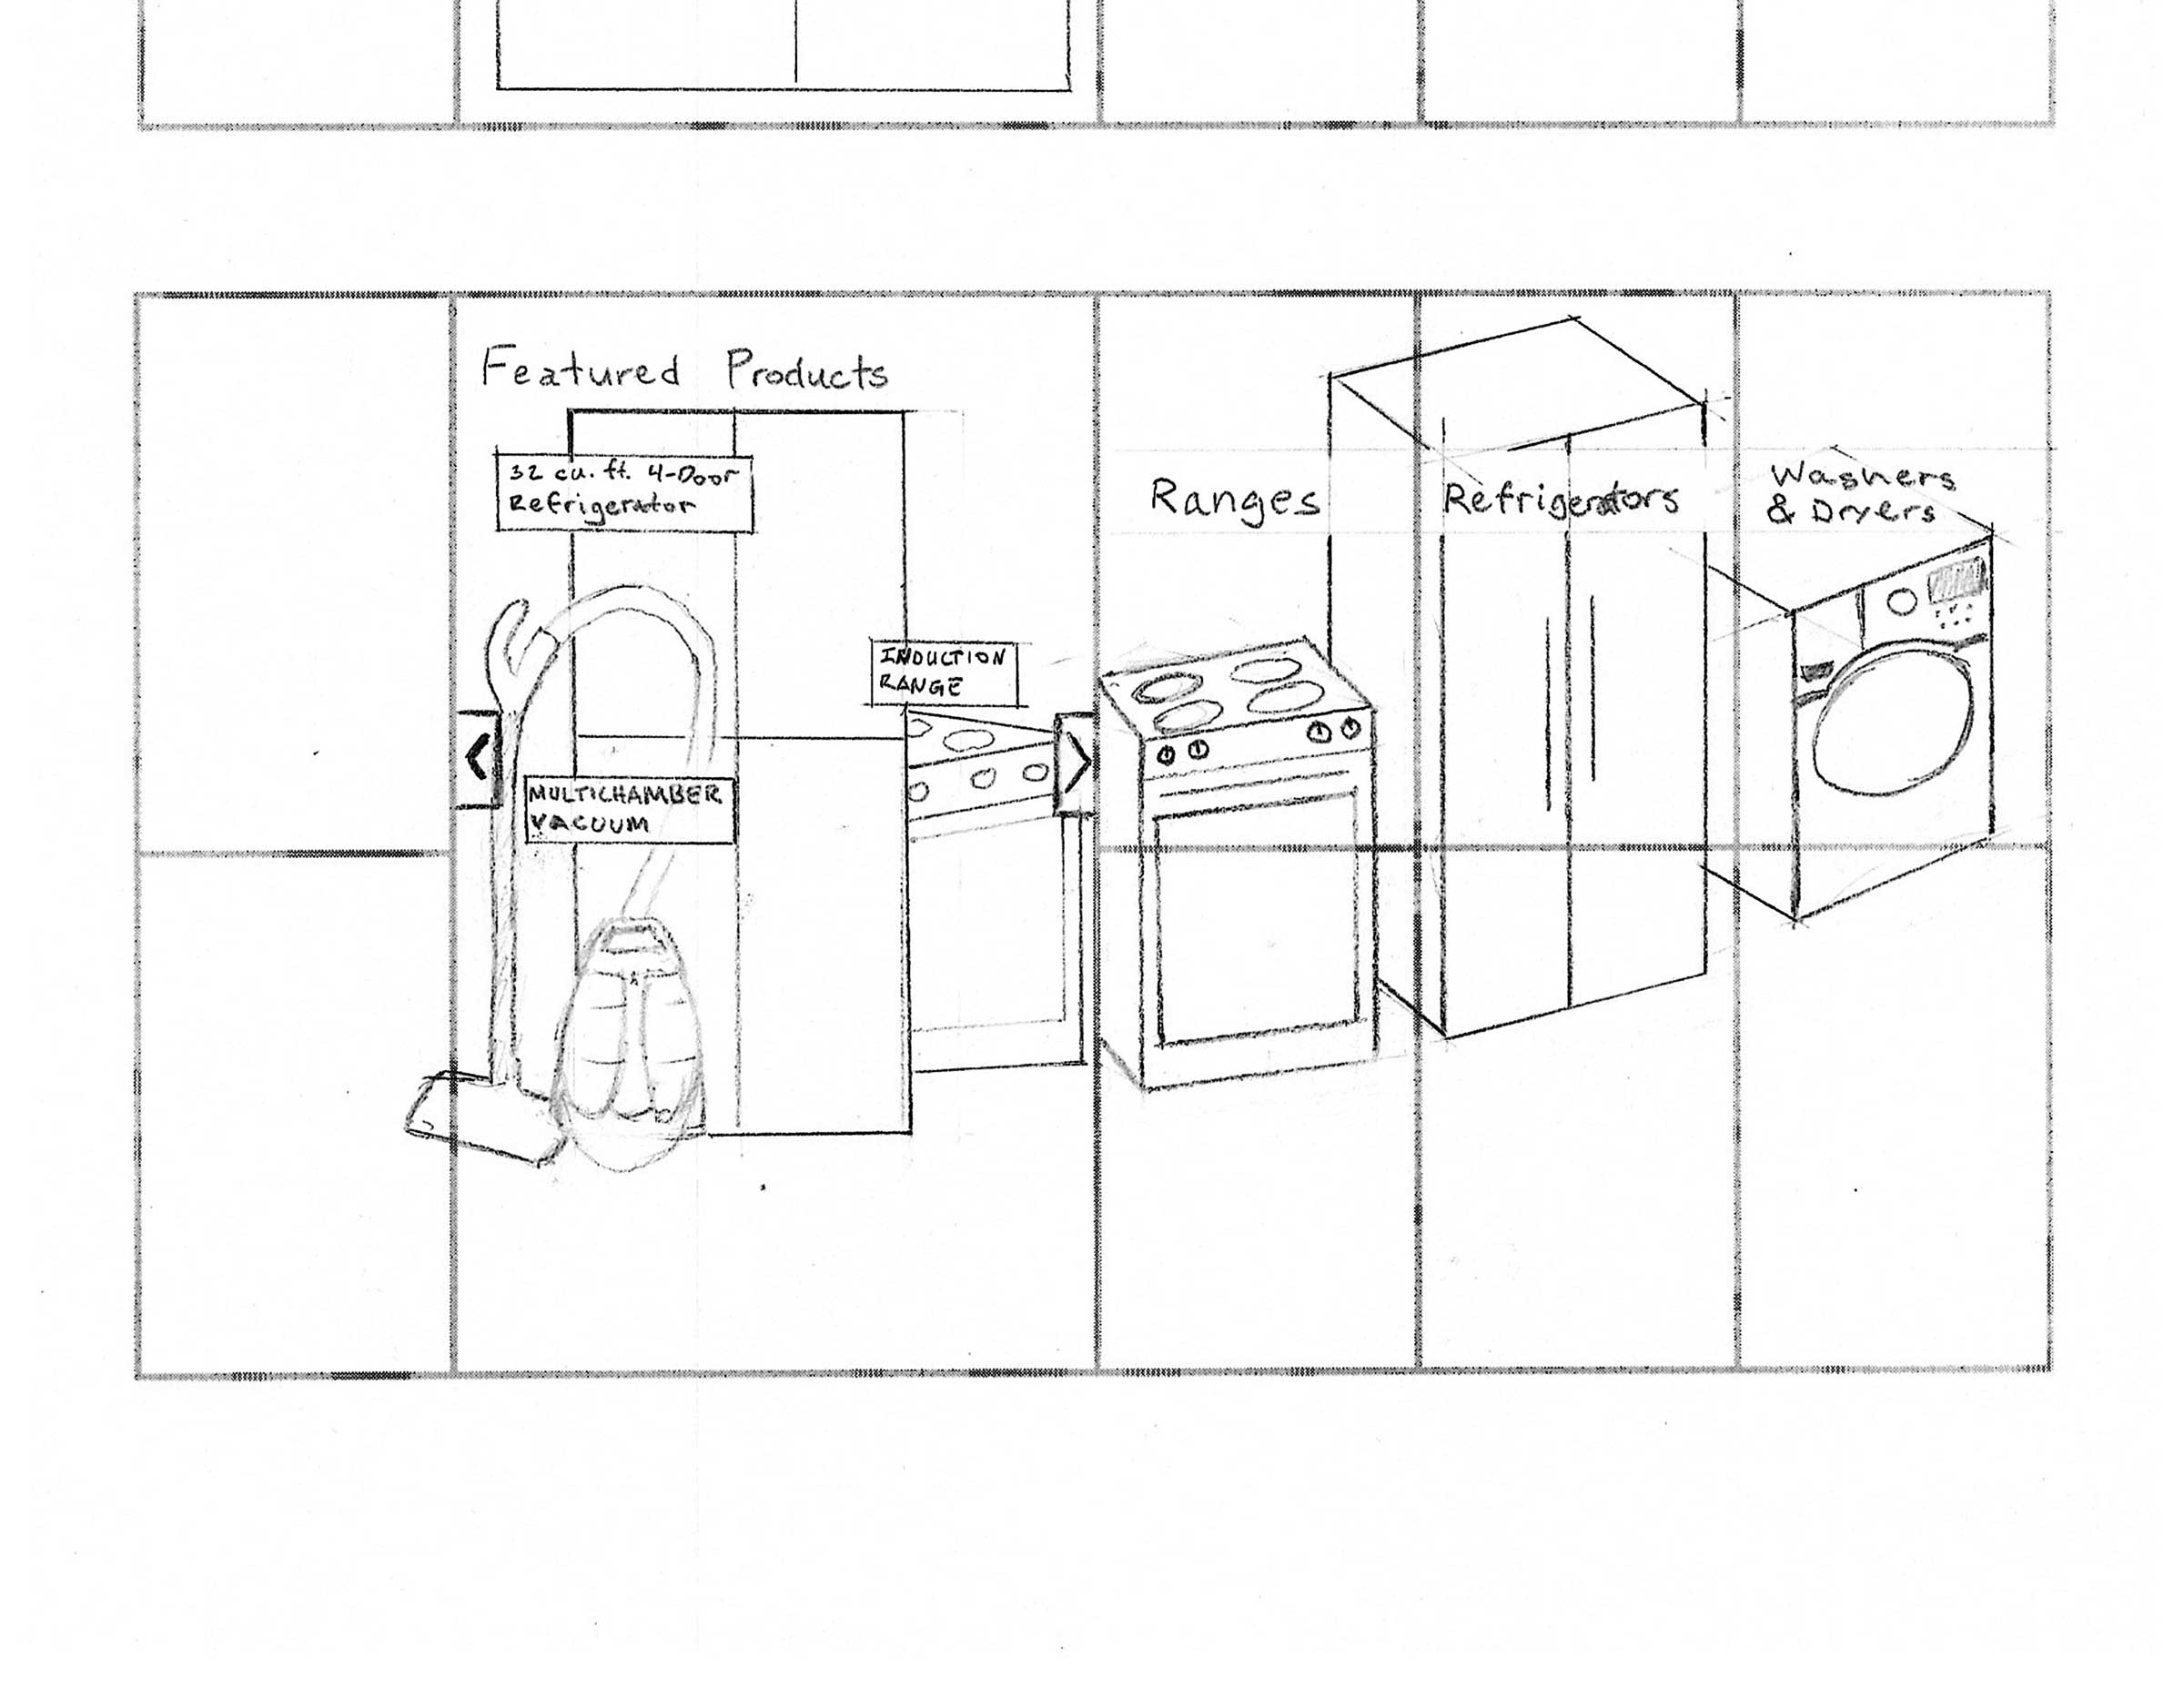 Featured Products
32 cu. ft. 4-Door
Refrigerator
INDUCTION
RANGE
<
>
MULTICHAMBER
VACUUM
Ranges
Refrigerators
Washers
& Dryers